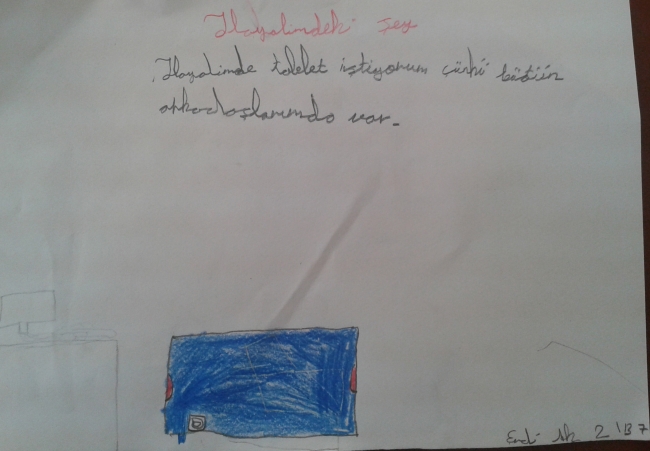 Hayalimdeki şey
Hayalimde tablet istiyorum çünki bütün
arkadaşlarımda var.
2/B 7